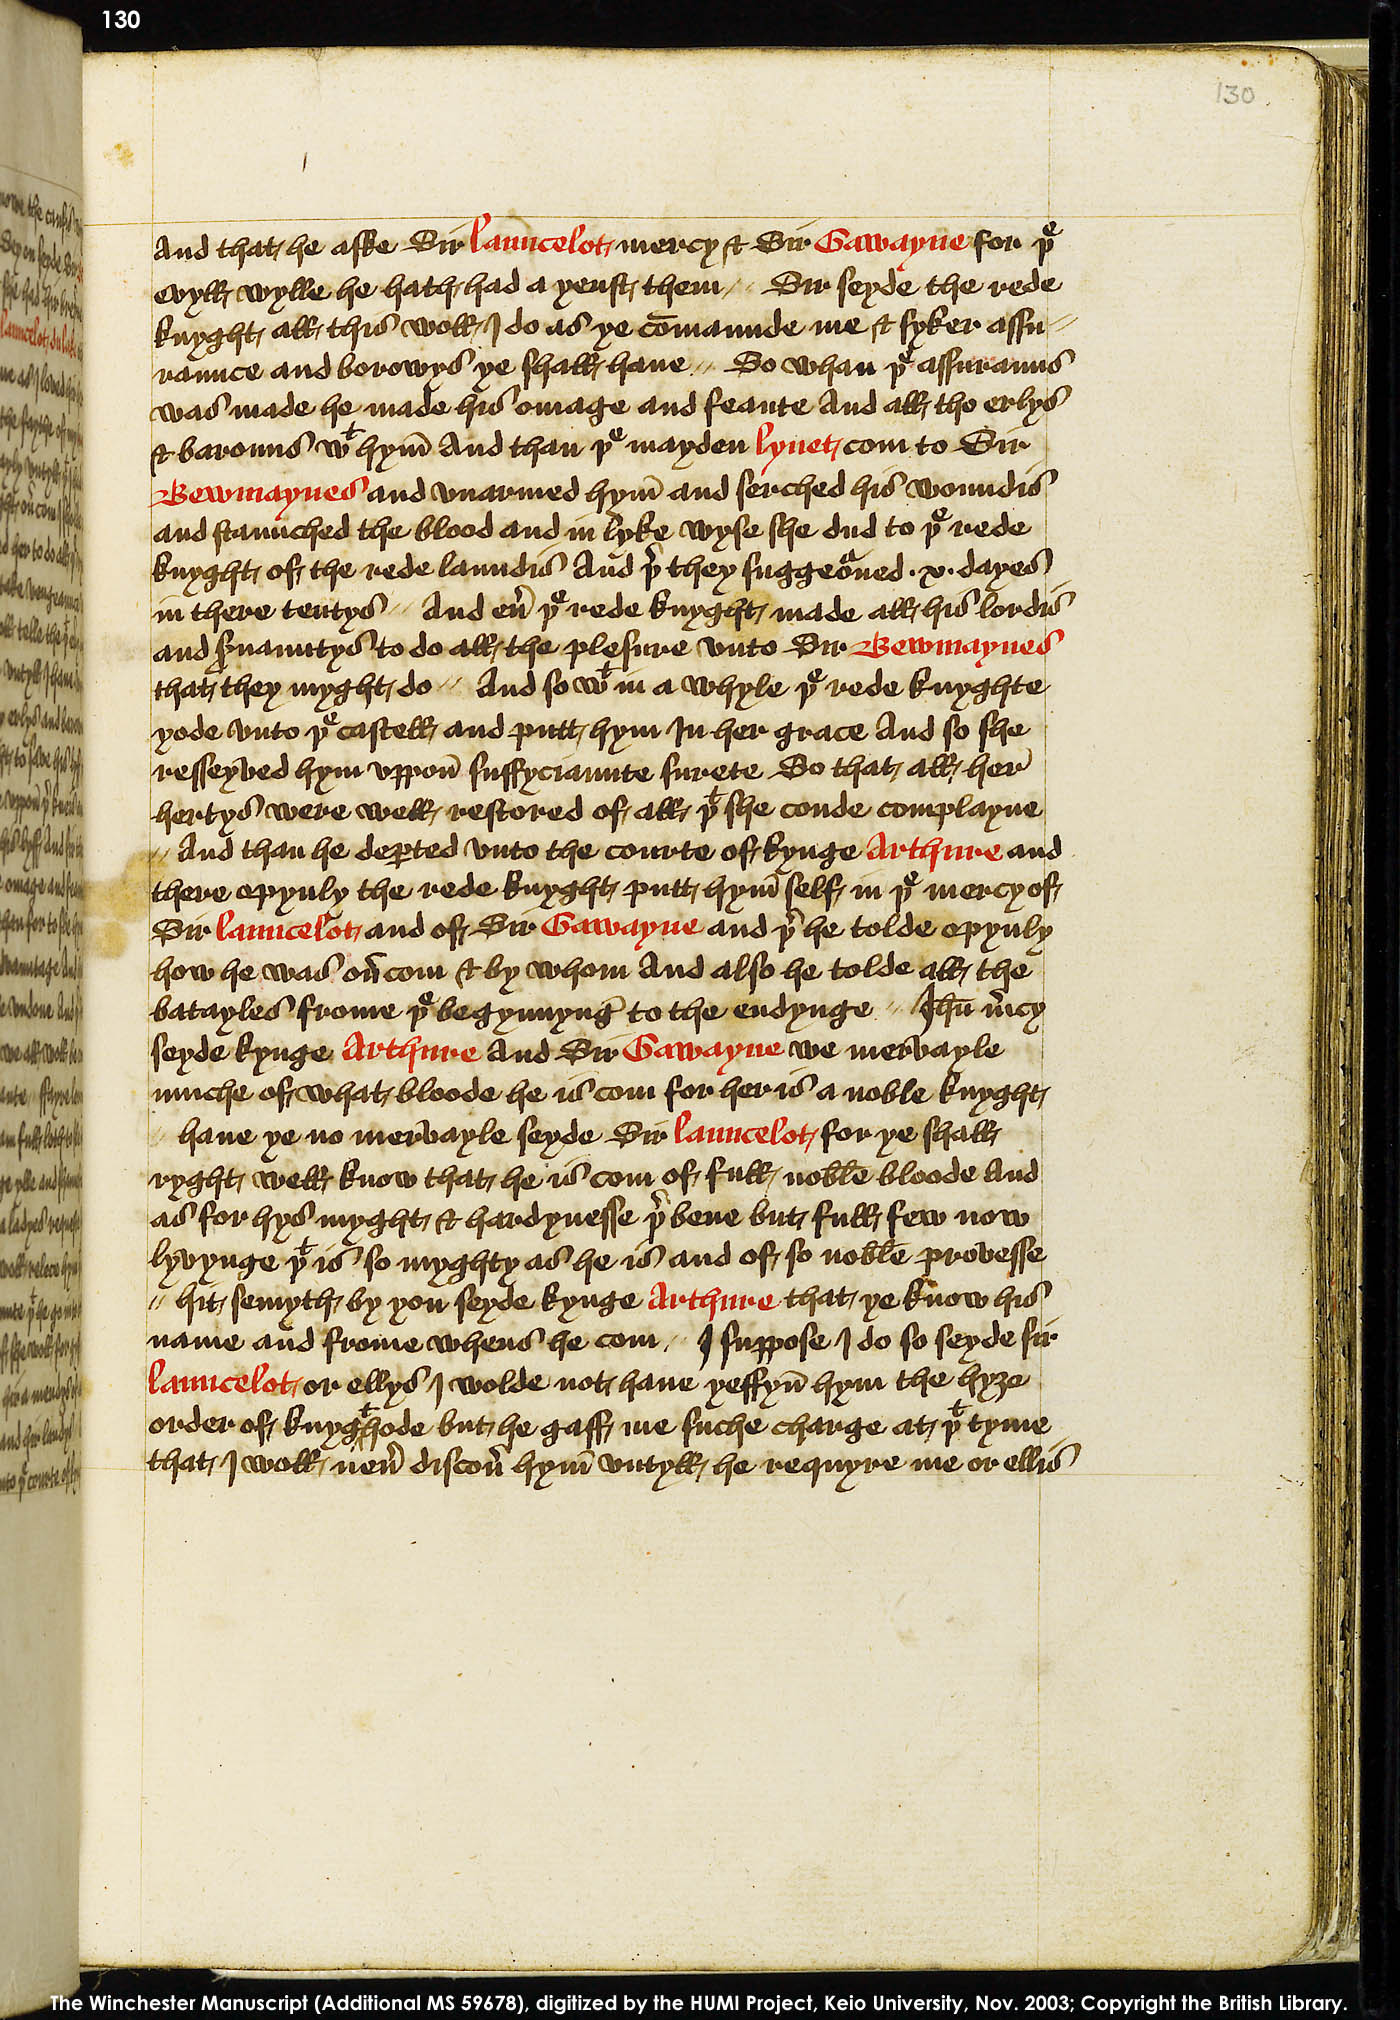 130
130
And that he aske Sir Launcelot mercy & Sir Gawayne for þᵉ
evyll wylle he hath had a yenst them // Sir seyde the rede
knyght all this woll I do as ye cōmaunde me & syker assu//
raunce and borowys ye shall haue // So whan þᵉ assurauns
was made he made his omage and feaute And all tho erlys
& barouns wᵗ hym̄ And than þᵉ mayden Lynet com to Sir
Bewmaynes and vnarmed hym̄ and serched his woundis
and staunched the blood and in lyke wyse she dud to þᵉ rede
knyght of the rede laundis And þ̉ they suggeo̾ned .x. dayes
in there tentys // And eu̾ þᵉ rede knyght made all his lordis
and s̾uauntys to do all the plesure vnto Sir Bewmaynes
that they myght do // And so wᵗ in a whyle þᵉ rede knyghte
yode vnto þᵉ castell and putt hym In her grace And so she
resseyved hym vppon̄ suffyciaunte surete So that all her̄
hertys were well restored of all þᵗ she coude complayne
// And than he dep̄ted vnto the courte of kynge Arthure and
there opynly the rede knyght putt hym̄ self in þᵉ mercy of
Sir Launcelot and of Sir Gawayne and þ̉ he tolde opynly
how he was ou̾com & by whom And also he tolde all the
batayles frome þᵉ begynnynḡ to the endynge // Ihū m̾cy
seyde kynge Arthure And Sir Gawayne we mervayle
muche of what bloode he is com for her is a noble knyght
// haue ye no mervayle seyde Sir Launcelot for ye shall
ryght well know that he is com of full noble bloode And
as for hys myght & hardynesse þ̉ bene but full few now
lyvynge þᵗ is so myghty as he is and of so noble provesse
// hit semyth by you seyde kynge Arthure that ye know his
name and frome whens he com // I suppose I do so seyde sir
Launcelot or ellys I wolde not haue yeffyn̄ hym the hyȝe
order of knygᵗhode but he gaff me suche charge at þᵗ tyme
that I woll neu̾ discou̾ hym̄ vntyll he requyre me or ellis
The Winchester Manuscript (Additional MS 59678), digitized by the HUMI Project, Keio University, Nov. 2003; Copyright the British Library.